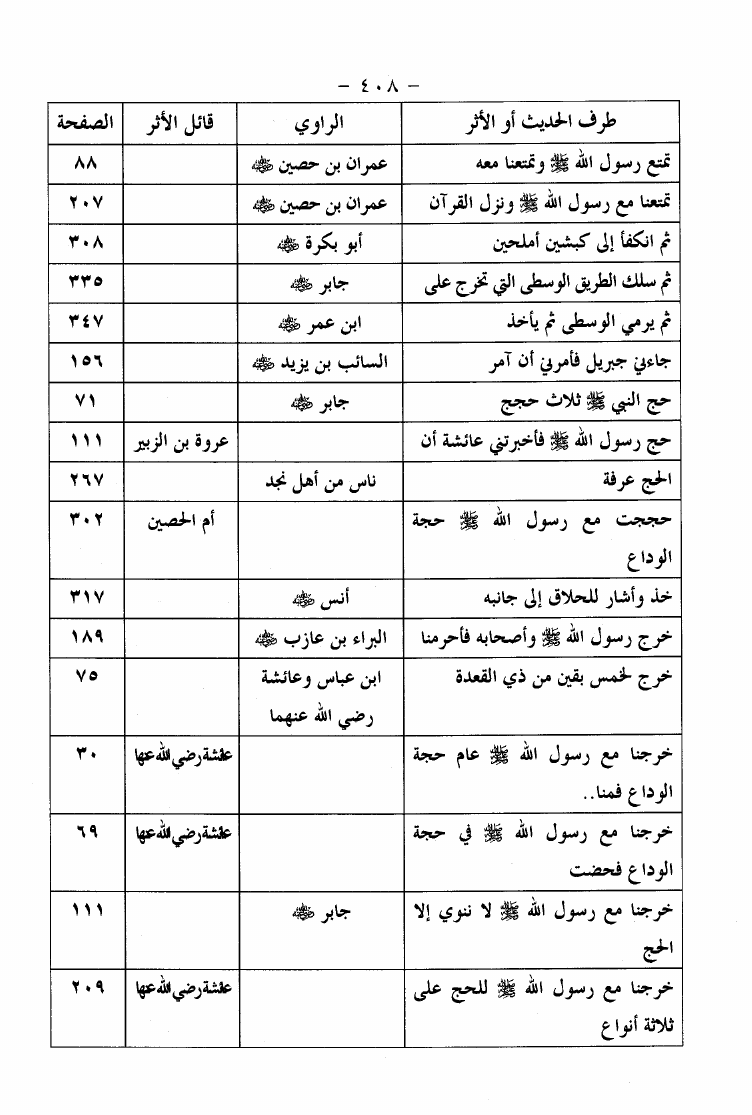 - ٤٠٨ -
طرف الحديث أو الأثر	الراوي	قائل الأثر	الصفحة
تمتع رسول الله ﷺ وتمتعنا معه	عمران بن حصين ﵁		٨٨
تمتعنا مع رسول الله ﷺ ونزل القرآن	عمران بن حصين ﵁		٢٠٧
ثم انكفأ إلى كبشين أملحين	أبو بكرة ﵁		٣٠٨
ثم سلك الطريق الوسطى التي تخرج على	جابر ﵁		٣٣٥
ثم يرمي الوسطى ثم يأخذ	ابن عمر ﵁		٣٤٧
جاءني جبريل فأمرني أن آمر	السائب بن يزيد ﵁		١٥٦
حج النبي ﷺ ثلاث حجج	جابر ﵁		٧١
حج رسول الله ﷺ فأخبرتني عائشة أن		عروة بن الزبير	١١١
الحج عرفة	ناس من أهل نجد		٢٦٧
حججت مع رسول الله ﷺ حجة		أم الحصين	٣٠٢
الوداع
خذ وأشار للحلاق إلى جانبه	أنس ﵁		٣١٧
خرج رسول الله ﷺ وأصحابه فأحرمنا	البراء بن عازب ﵁		١٨٩
خرج لخمس بقين من ذي القعدة	ابن عباس وعائشة		٧٥
رضي الله عنهما
خرجنا مع رسول الله ﷺ عام حجة		عائشة رضي الله عنها	٣٠
الوداع فمنا..
خرجنا مع رسول الله ﷺ في حجة		عائشة رضي الله عنها	٦٩
الوداع فحضت
خرجنا مع رسول الله ﷺ لا ننوي إلا	جابر ﵁		١١١
الحج
خرجنا مع رسول الله ﷺ للحج على		عائشة رضي الله عنها	٢٠٩
ثلاثة أنواع